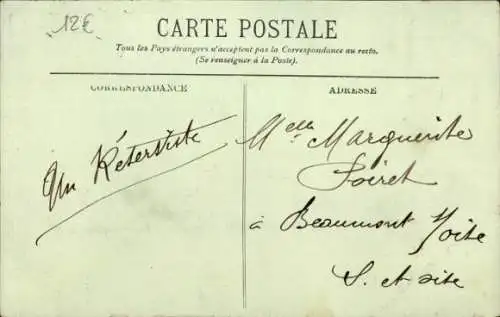 12€
CARTE POSTALE
Tous les Pays étrangers n'acceptent pas la Correspondance au recto.
(Se renseigner à la Poste).
CORRESPONDANCE
ADRESSE
Un Réterviste
Melle Marguerite
Loiret
à Beaumont
S. et oise